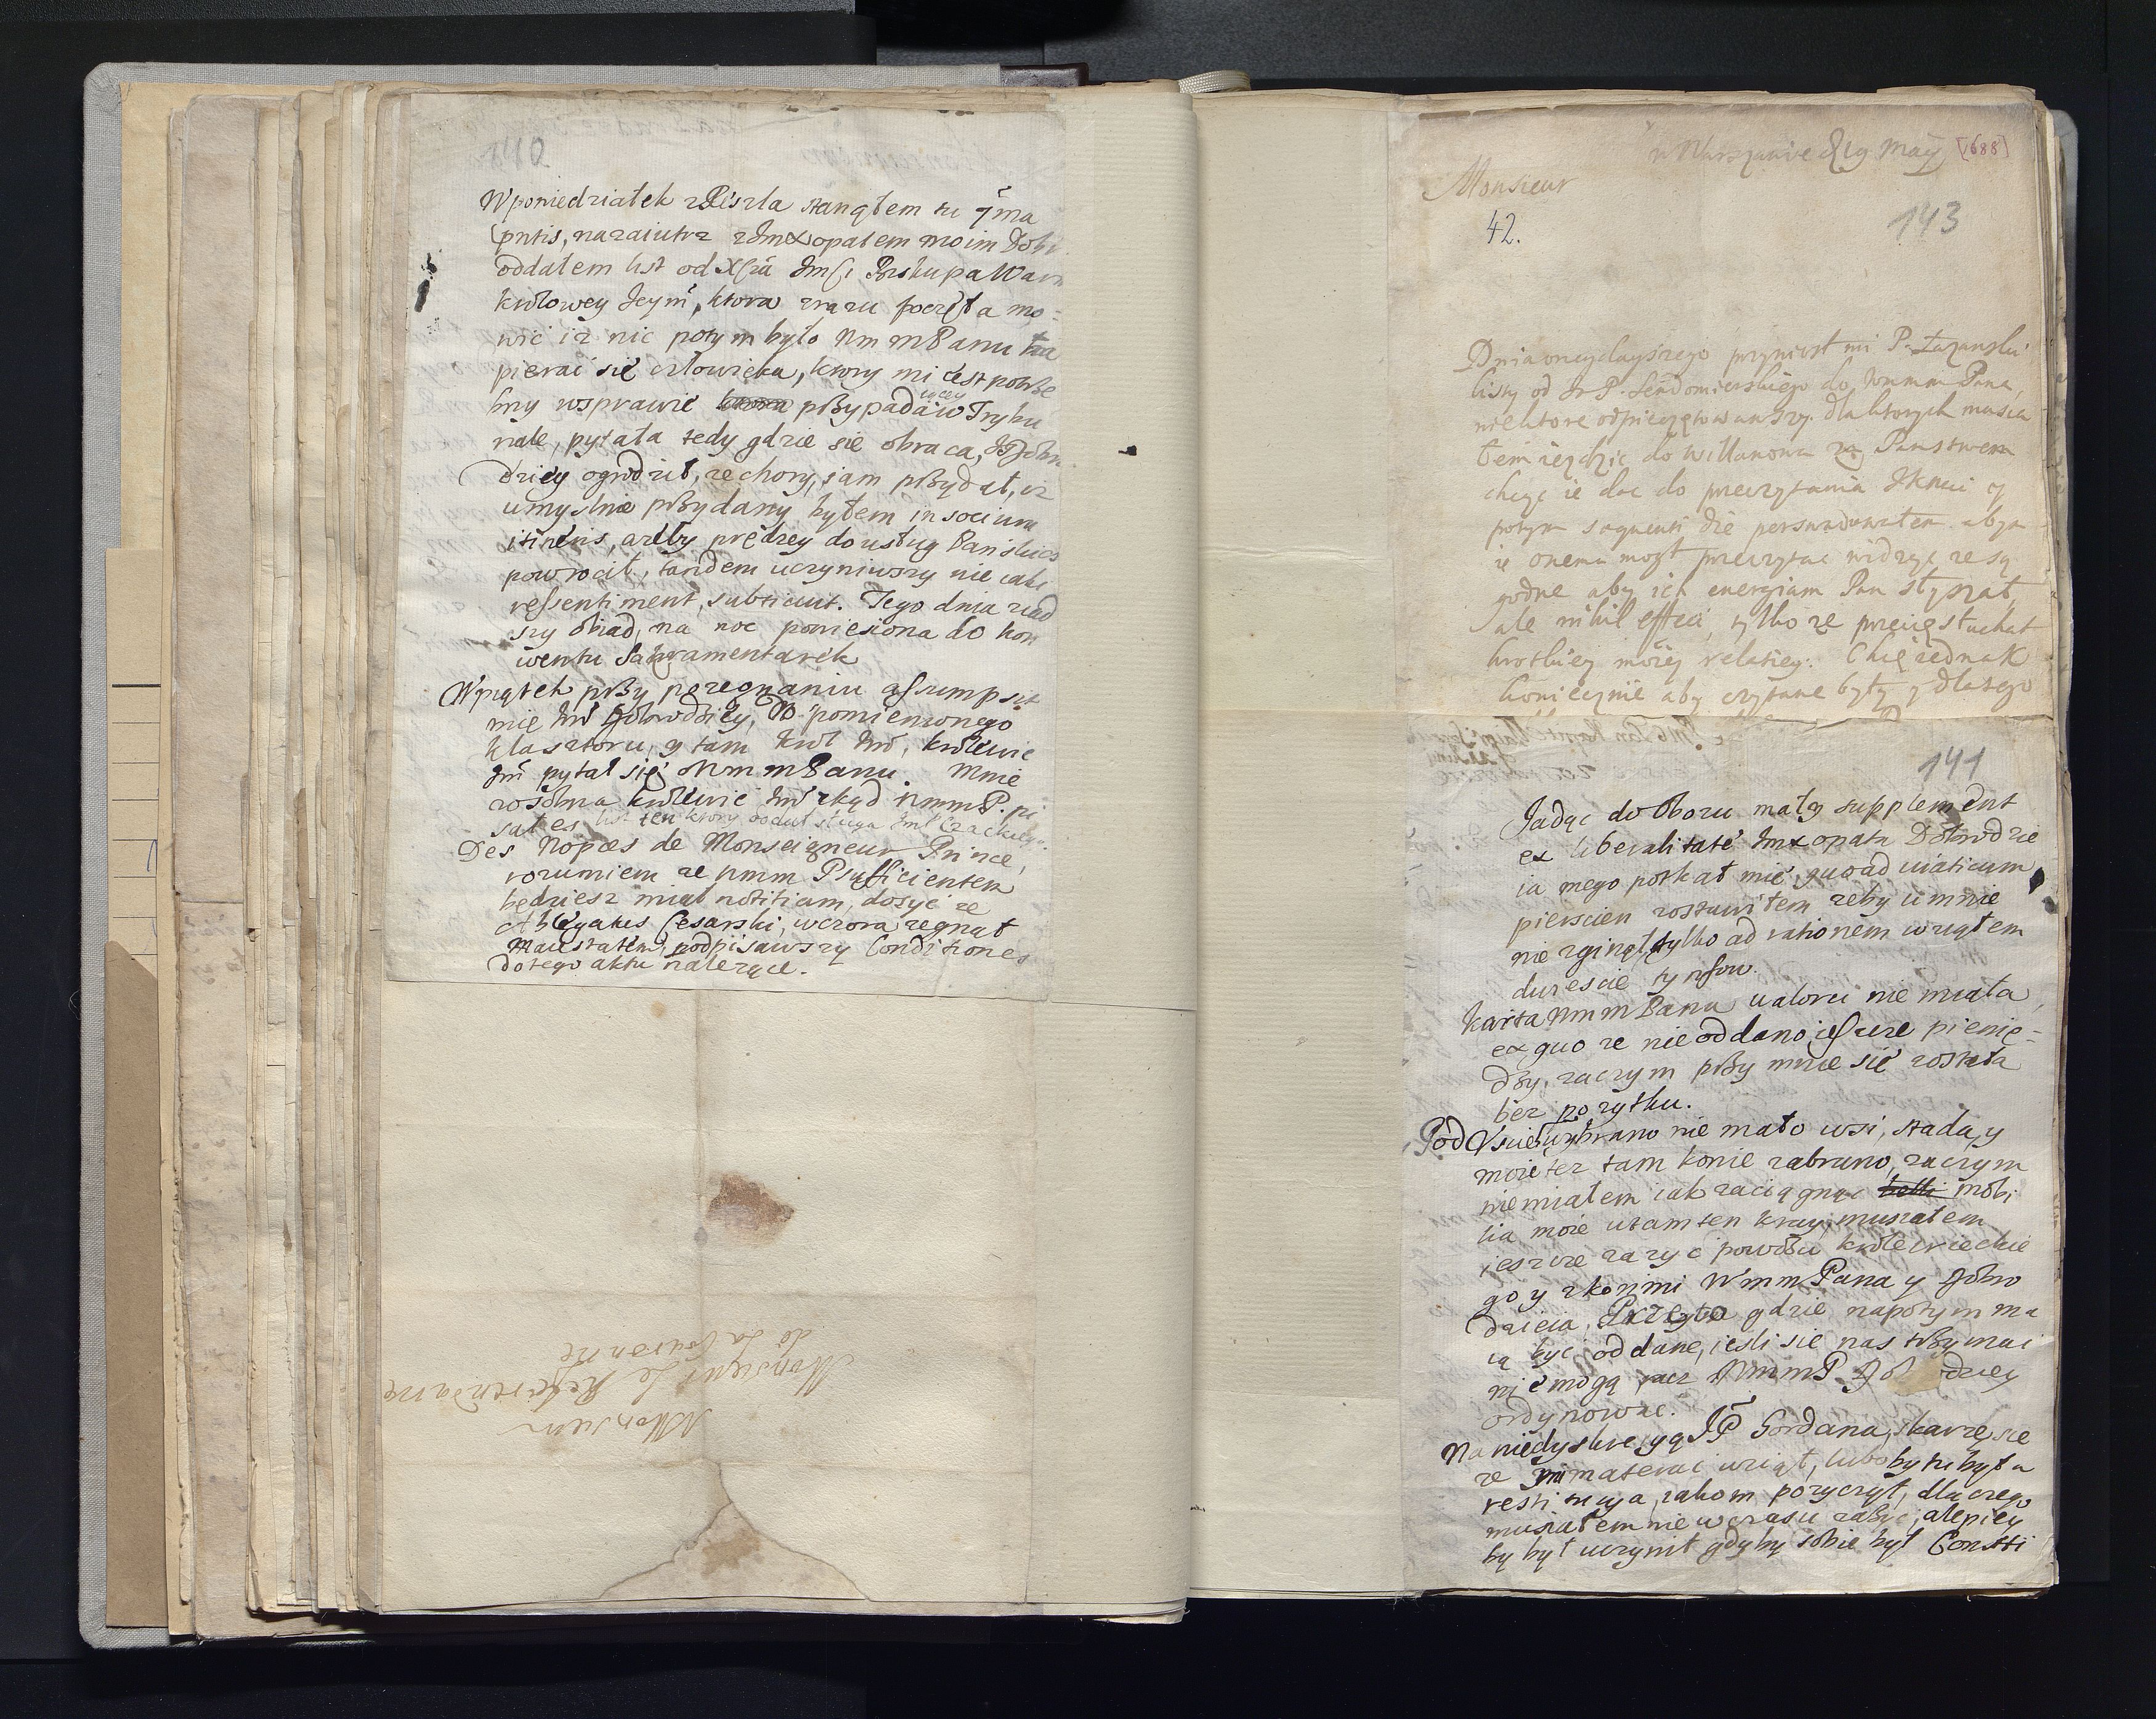 140
W poniedziałek z Pieszła stanąłem tu 7ma
pntis, nazaiutrz z Jmx opatem moim Dob
oddałem list od X Jmsi Biskupa Warm
krolowey Jeym, ktora zrazu poczęła mo=
wić iz nic potym było WmmPanu za
pierać się człowieka, ktory mi iest potrze
bny wsprawie przypadaiącey w Trybu
nale, pytała tedy gdzie się obraca,
dziey ogrodził, ze chory, jam przydał, iz
umyslnie przydany byłem in socium
itineris, azeby prędzey do usług Panskich
powrocił, tandem uczyniwszy nie iaki
ressentiment, subticuit. Tego dnia ziad
szy obiad, na noc powiesiona do kon
wentu Sakramentarek
W piątek przy pozegnaniu assumpsit
mie Jmć Dobrodziey, do pomienionego
klasztoru, y tam Krol Jmć, krolewic
Jmć pytał się o WmmPanu. Mnie
rosobna krolewic Jmć zkąd WmmP. pi
sał es list ten ktory oddał sługa Jmć Czackiego
Des Nopces de Monseigneur Prince,
rozumiem ze wmm P sufficientem
będziesz miał notitiam, dosyć ze
Ablegatus Cesarski, wczora zegnał
Maiestatem, podpisawszy Conditiones
do tego aktu nalezące.
Monsieur
Monsieur Le Referendaire
de la Couronne
w Warszawie d 19 Maÿ [1688]
Monsieur
42.
143
Dnia onegdayszego przyniosł mi P. Łazanski
listy od Jr P. Sendomirskiego do Wmm Pana,
niektore odpieczętowawszy. dla ktorych musia
łem iezdzic do Willanowa za Panstwem
chcąc ie dac do przeczytania JKmci y
potym sequenti die perswadowałem abym
ie onemu mogł przeczytac widząc ze są
godne aby ich energiam Pan słyszał,
ale nihil effeci, tylko ze przecię słuchał
krotkiey moiey relatiey. Chcę iednak
koniecznie aby czytane były y dlatego
141
Jadąc do Oboru mały supplement
ex liberalitate Jmx opata Dobrodzie
ia mego potkał mię, quoad uiaticum
pierscien zostawiłem zeby u mnie
nie zginął, tylko ad rationem wziąłem
dwiescie tynfow.
Karta WmmPana waloru nie miała,
ex quo ze nie oddano ieszcze pienię=
dzy, zaczym przy mnie się została
bez pozytku.
Pod Uscie wybrano nie mało wsi, stada, y
moie tez tam konie zabrano, zaczym
nie miałem iak zaciągnąc mobi
lia moie w tamten kray, musiałem
ieszcze zazyc powozu krolewieckie
go y zkonmi WmmPana y Dobro
dzieia, gdzie napotym ma
ią byc oddane, iesli się nas trzymac
nie mogą racz WmmP Do dziey
ordynowac.
Na niedyskrecyą JP Gordana, skarzę się
ze mi materac wziął, lubo by tu była
restitucya, zakom pozyczył, dla czego
musiałem niewczasu zazyc, alepiey
by był uczynił gdyby sobie był Consti